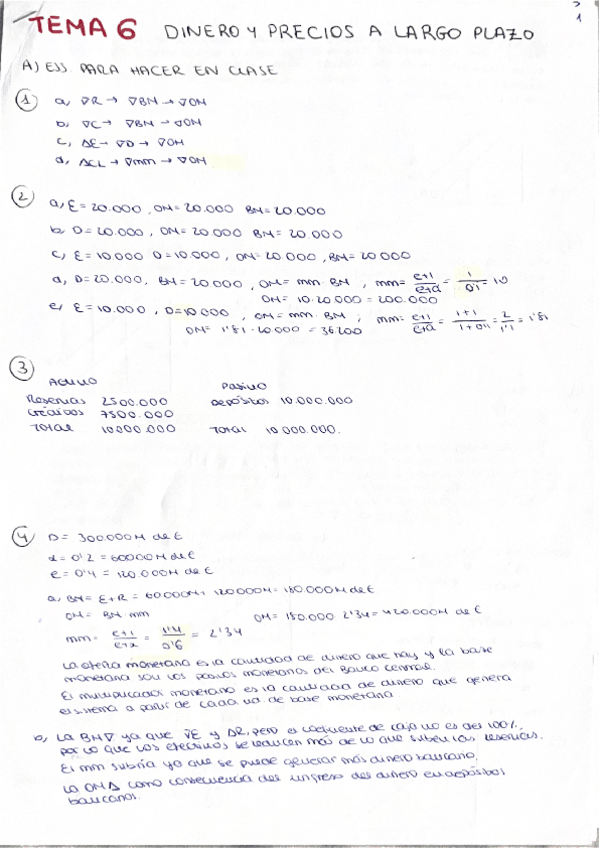 1
TEMA 6 DINERO Y PRECIOS A LARGO PLAZO
A) ESS. PARA HACER EN CLASE
① a, ∇R → ∇BM → ∇OM
b, ∇C → ∇BM → ∇OM
c, ΔE → ∇D → ∇OM
d, ΔCL → ∇mm → ∇OM
② a, E = 20.000, OM = 20.000 BM = 20.000
b, D = 20.000, OM = 20.000 BM = 20.000
c, E = 10.000 D = 10.000, OM = 20.000, BM = 20.000
d, D = 20.000, BM = 20.000, OM = mm · BM, mm = e+1/e+d = 1/0'1 = 10
OM = 10·20.000 = 200.000
e, E = 10.000, D = 10.000, OM = mm · BM, mm = e+1/e+d = 1+1/1+0'1 = 2/1'1 = 1'81
OM = 1'81 · 20000 = 36200
③
Activo Pasivo
Reservas 2500.000 Depósitos 10.000.000
Créditos 7500.000
Total 10000.000 Total 10.000.000.
④ D = 300.000M de €
d = 0'2 = 60000M de €
e = 0'4 = 120.000M de €
a, BM = E+R = 60000M + 120000M = 180.000M de €
OM = BM · mm OM = 180.000 2'34 = 420.000M de €
mm = e+1/e+d = 1'4/0'6 = 2'34
La oferta monetaria es la cantidad de dinero que hay y la base
monetaria son los pasivos monetarios del Banco Central.
El multiplicador monetario es la cantidad de dinero que genera
el sistema a partir de cada ud de base monetaria
b, La BM∇ ya que ∇E y ΔR, pero el coeficiente de caja no es del 100%,
por lo que los efectivos se reducen más de lo que suben las reservas.
El mm subiría ya que se puede generar más dinero bancario.
La OMΔ como consecuencia del ingreso del dinero en depósitos
bancarios.